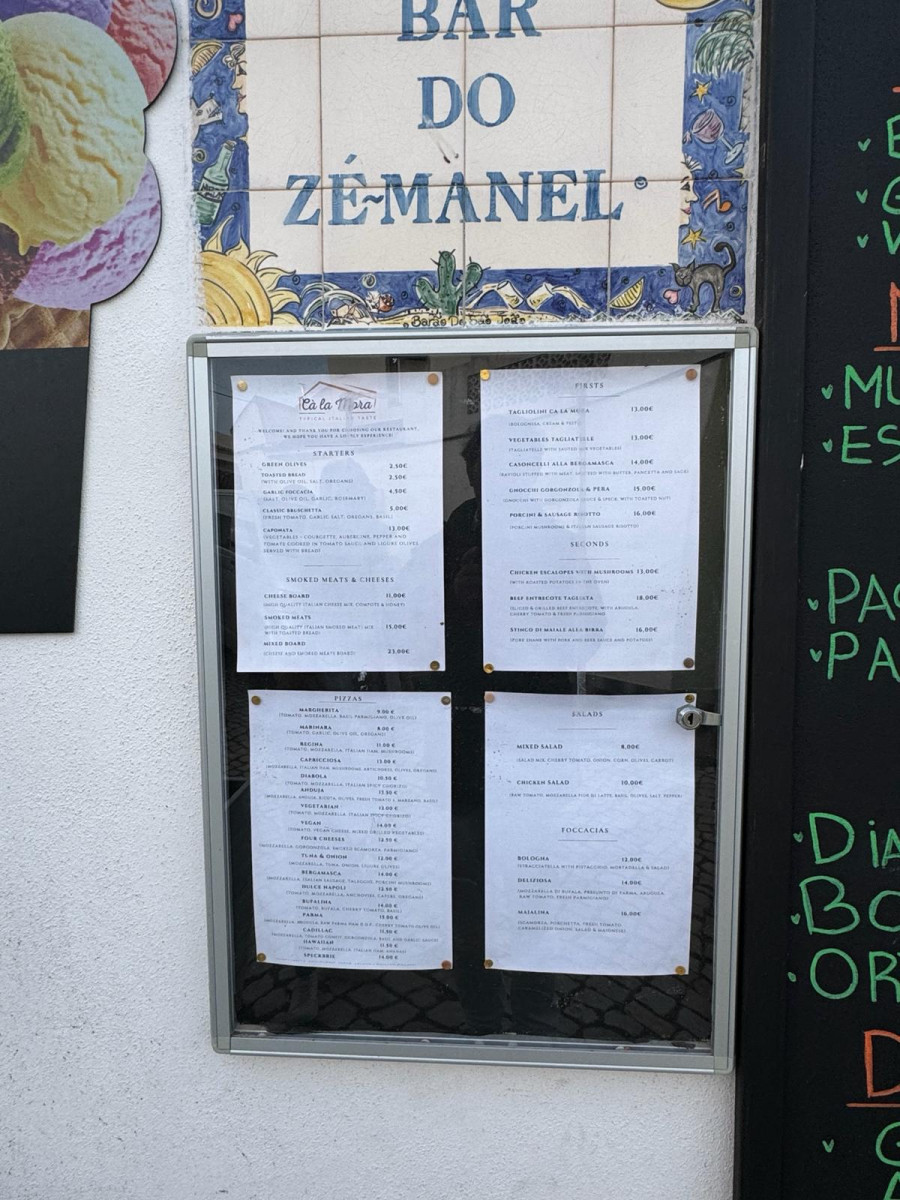 BAR
DO
ZÉ~MANEL
Cà la Mora
TYPICAL ITALIAN TASTE
WELCOME! AND THANK YOU FOR CHOOSING OUR RESTAURANT,
WE HOPE YOU HAVE A LOVELY EXPERIENCE!
STARTERS
GREEN OLIVES 2,50€
TOASTED BREAD 2,50€
(WITH OLIVE OIL, SALT, OREGANO)
GARLIC FOCCACIA 4,50€
(SALT, OLIVE OIL, GARLIC, ROSEMARY)
CLASSIC BRUSCHETTA 5,00€
(FRESH TOMATO, GARLIC, SALT, OREGANO, BASIL)
CAPONATA 13,00€
(VEGETABLES - COURGETTE, AUBERGINE, PEPPER AND
TOMATO COOKED IN TOMATO SAUCE AND LIGURE OLIVES,
SERVED WITH BREAD)
SMOKED MEATS & CHEESES
CHEESE BOARD 11,00€
(HIGH QUALITY ITALIAN CHEESE MIX, COMPOTE & HONEY)
SMOKED MEATS
(HIGH QUALITY ITALIAN SMOKED MEAT) MIX 15,00€
WITH TOASTED BREAD)
MIXED BOARD
(CHEESE AND SMOKED MEATS BOARD) 23,00€
FIRSTS
TAGLIOLINI CA LA MORA 13,00€
(BOLOGNESA, CREAM &
VEGETABLES TAGLIATELLE 13,00€
(TAGLIATELLE WITH SAUTED MIX VEGETABLES)
CASONCELLI ALLA BERGAMASCA 14,00€
(RAVIOLI STUFFED WITH MEAT, SAUCED WITH BUTTER, PANCETTA AND SAGE)
GNOCCHI GORGONZOLA & PERA 15,00€
(GNOCCHI WITH GORGONZOLA SAUCE & SPICE, WITH TOASTED NUT)
PORCINI & SAUSAGE RISOTTO 16,00€
(PORCINI MUSHROOMS & ITALIAN SAUSAGE RISOTTO)
SECONDS
CHICKEN ESCALOPES WITH MUSHROOMS 13,00€
(WITH ROASTED POTATOES IN THE OVEN)
BEEF ENTRECOTE TAGLIATA 18,00€
(SLICED & GRILLED BEEF ENTRECOTE, WITH ARUGULA,
CHERRY TOMATO & FRESH PARMIGIANO)
STINCO DI MAIALE ALLA BIRRA 16,00€
(PORK SHANK WITH PORK AND BEER SAUCE AND POTATOES)
PIZZAS
MARGHERITA 9.00 €
(TOMATO, MOZZARELLA, BASIL, PARMIGIANO, OLIVE OIL)
MARINARA 8.00 €
(TOMATO, GARLIC, OLIVE OIL, OREGANO)
REGINA 11.00 €
(TOMATO, MOZZARELLA, ITALIAN HAM, MUSHROOMS)
CAPRICCIOSA 13.00 €
(MOZZARELLA, ITALIAN HAM, MUSHROOMS, ARTICHOKE, OLIVES, OREGANO)
DIABOLA 10.50 €
(TOMATO, MOZZARELLA, ITALIAN SPICY CHORIZO)
ANDUJA 13.50 €
VEGETARIAN 13.00 €
VEGAN 14.00 €
(TOMATO, VEGAN CHEESE, MIXED GRILLED VEGETABLES)
FOUR CHEESES 12.50 €
(MOZZARELLA, GORGONZOLA, SMOKED SCAMORZA, PARMIGIANO)
TUNA & ONION 12.00 €
(MOZZARELLA, TUNA, ONION, LIGURE OLIVES)
BERGAMASCA 14.00 €
(MOZZARELLA, ITALIAN SAUSAGE, TALEGGIO, PORCINI MUSHROOMS)
DULCE NAPOLI 12.00 €
(TOMATO, MOZZARELLA, ANCHOVIES, CAPERS, OREGANO)
BUFALINA 14.00 €
(TOMATO, BUFALA, CHERRY TOMATO, BASIL)
PARMA 15.00 €
CADILLAC 11.50 €
HAWAIIAN 11.50 €
(TOMATO, MOZZARELLA, ITALIAN HAM, ANANAS)
14.00 €
SALADS
MIXED SALAD 8,00€
(SALAD MIX, CHERRY TOMATO, ONION, CORN, OLIVES, CARROT)
CHICKEN SALAD 10,00€
(RAW TOMATO, MOZZARELLA FIOR DI LATTE, BASIL, OLIVES, SALT, PEPPER)
FOCCACIAS
BOLOGNA 12,00€
(STRACCIATELLA WITH PISTACCHIO, MORTADELLA & SALAD)
DELIZIOSA 14,00€
(MOZZARELLA DI BUFALA, PRESUNTO DI PARMA, ARUGULA,
RAW TOMATO, FRESH PARMIGIANO)
MAIALINA 16,00€
(SCAMORZA, PORCHETTA, FRESH TOMATO,
CARAMELIZED ONION, SALAD & MAIONESE)
MU
ES
PA
DiA
BO
OR
D